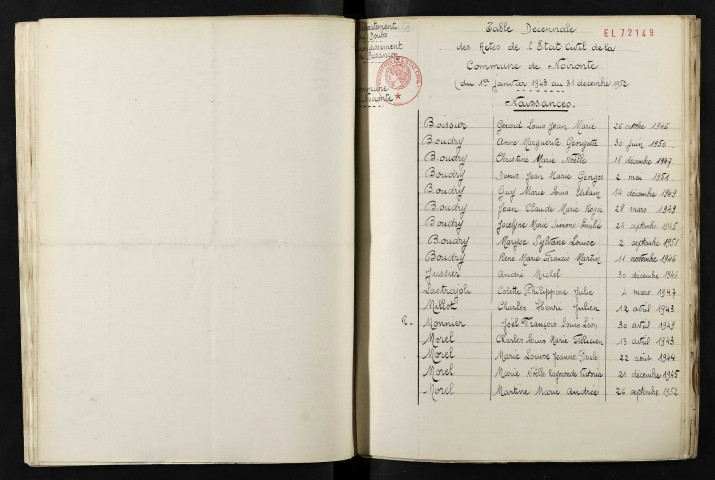 Département
du Doubs
Arrondissement
de Besançon
Commune
de Noironte
Table Décennale
EL 72149
des Actes de l'Etat Civil de la
Commune de Noironte
(du 1er janvier 1943 au 31 décembre 1952
Naissances.
Boissier Gérard Louis Jean Marie 26 octobre 1946
Boudry Anne Marguerite Georgette 30 juin 1950
Boudry Christine Marie Noëlle 18 décembre 1947
Boudry Denis Jean Marie Georges 2 mai 1951
Boudry Guy Marie Louis Urbain 14 décembre 1949
Boudry Jean Claude Marie Roger 28 mars 1949
Boudry Jocelyne Marie Simone Emilie 24 septembre 1945
Boudry Maryse Sylviane Louise 2 septembre 1951
Boudry René Marie François Martin 11 novembre 1946
Jussier André Michel 30 décembre 1946
Lastrajoli Colette Philippine Julie 4 mars 1947
Millot Charles Henri Julien 12 avril 1943
Monnier Joël François Louis Léon 30 avril 1949
Morel Charles Louis Marie Félicien 13 avril 1943
Morel Marie Louise Jeanne Paule 22 août 1944
Morel Marie Noëlle Raymonde Victoria 21 décembre 1945
Morel Martine Marie Andrée 26 septembre 1952